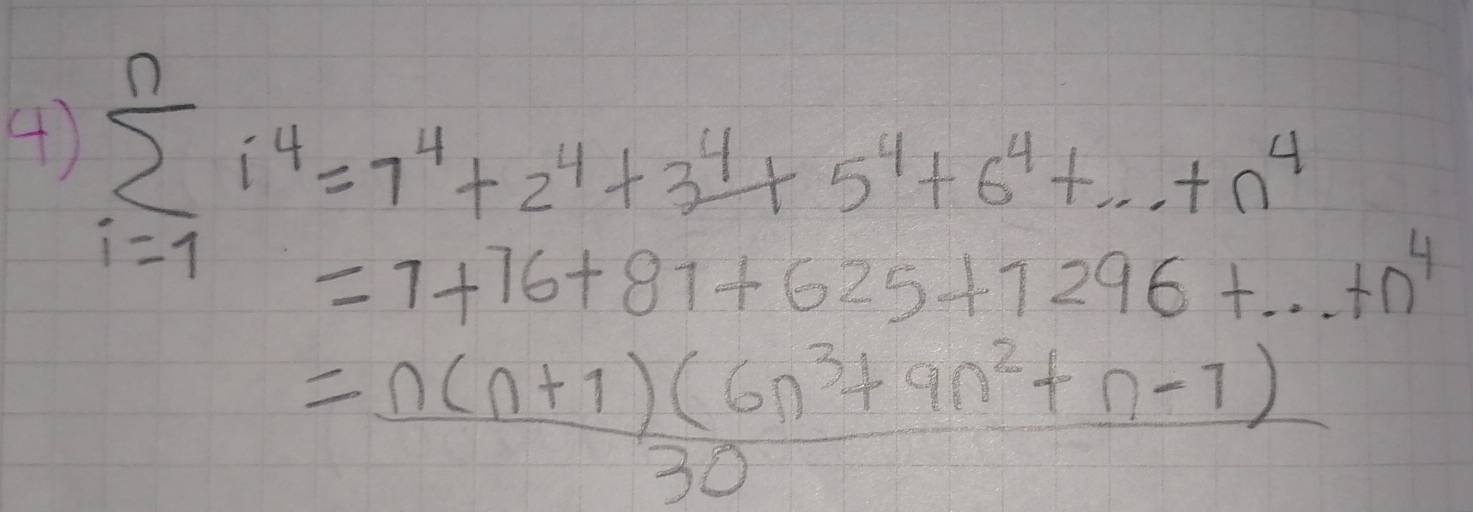 4) \sum_{i=1}^{n} i^4 = 1^4 + 2^4 + 3^4 + 5^4 + 6^4 + ... + n^4
= 1 + 16 + 81 + 625 + 1296 + ... + n^4
= \frac{n(n+1)(6n^3 + 9n^2 + n - 1)}{30}